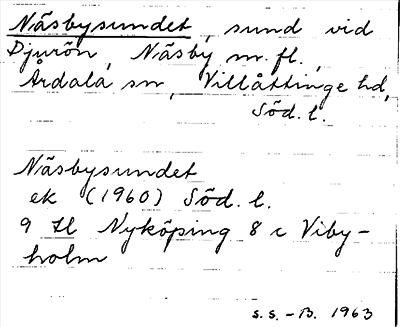 Näsbysundet, sund vid
Djurön, Näsby m.fl.,
Årdala sn, Villåttinge hd,
Söd. l.
Näsbysundet
ek (1960) Söd. l.
9 Hl Nyköping 8 c Viby-
holm
s.s. - B. 1963